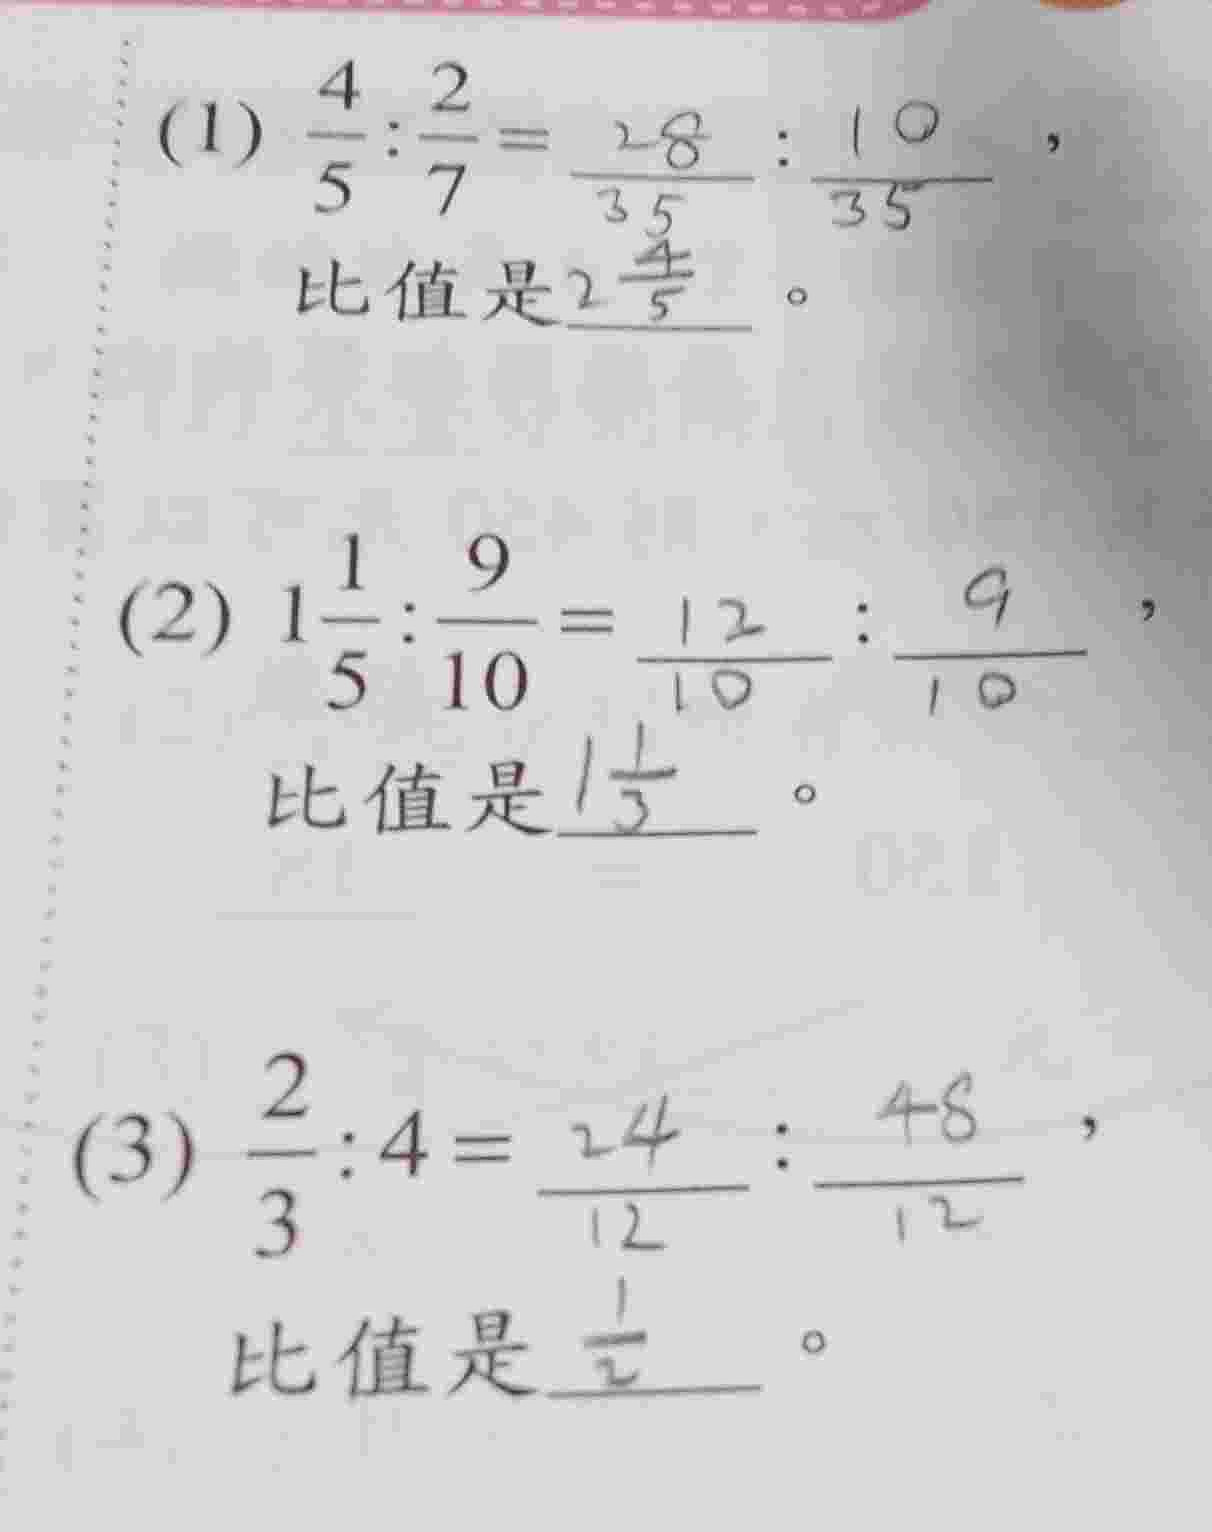 (1) 4/5 : 2/7 = 28/35 : 10/35 ，
比值是 2 4/5 。
(2) 1 1/5 : 9/10 = 12/10 : 9/10 ，
比值是 1 1/3 。
(3) 2/3 : 4 = 24/12 : 48/12 ，
比值是 1/2 。